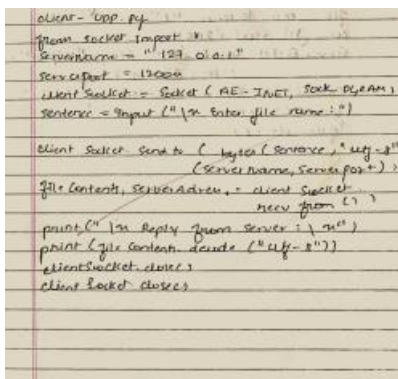 client - UDP. py
from socket import *
servername = "127.0.0.1"
serverport = 12000
client Socket = Socket (AF-INET, SOCK_DGRAM)
sentence = Input ("\n Enter file name :")
client Socket. Send to ( bytes (Sentence, "utf-8")
(server Name, Server port)
file Contents, server Address, = client Socket.
recv from ( )
print (" \n Reply from Server : \n")
print (file Content. decode ("utf-8"))
clientSocket. close ( )
client Socket close ( )